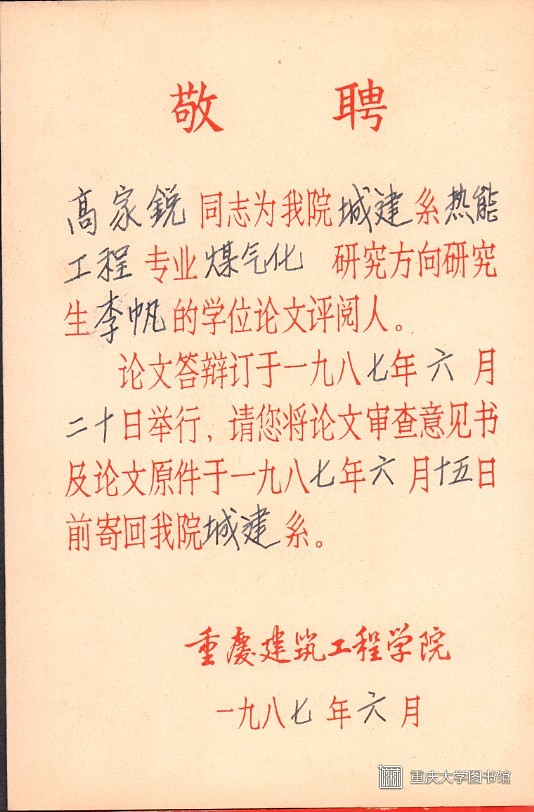 敬 聘
高家锐同志为我院城建系热能
工程专业煤气化 研究方向研究
生李帆的学位论文评阅人。
论文答辩订于一九八七年六月
二十日举行，请您将论文审查意见书
及论文原件于一九八七年六月十五日
前寄回我院城建系。
重庆建筑工程学院
一九八七年六月
重庆大学图书馆